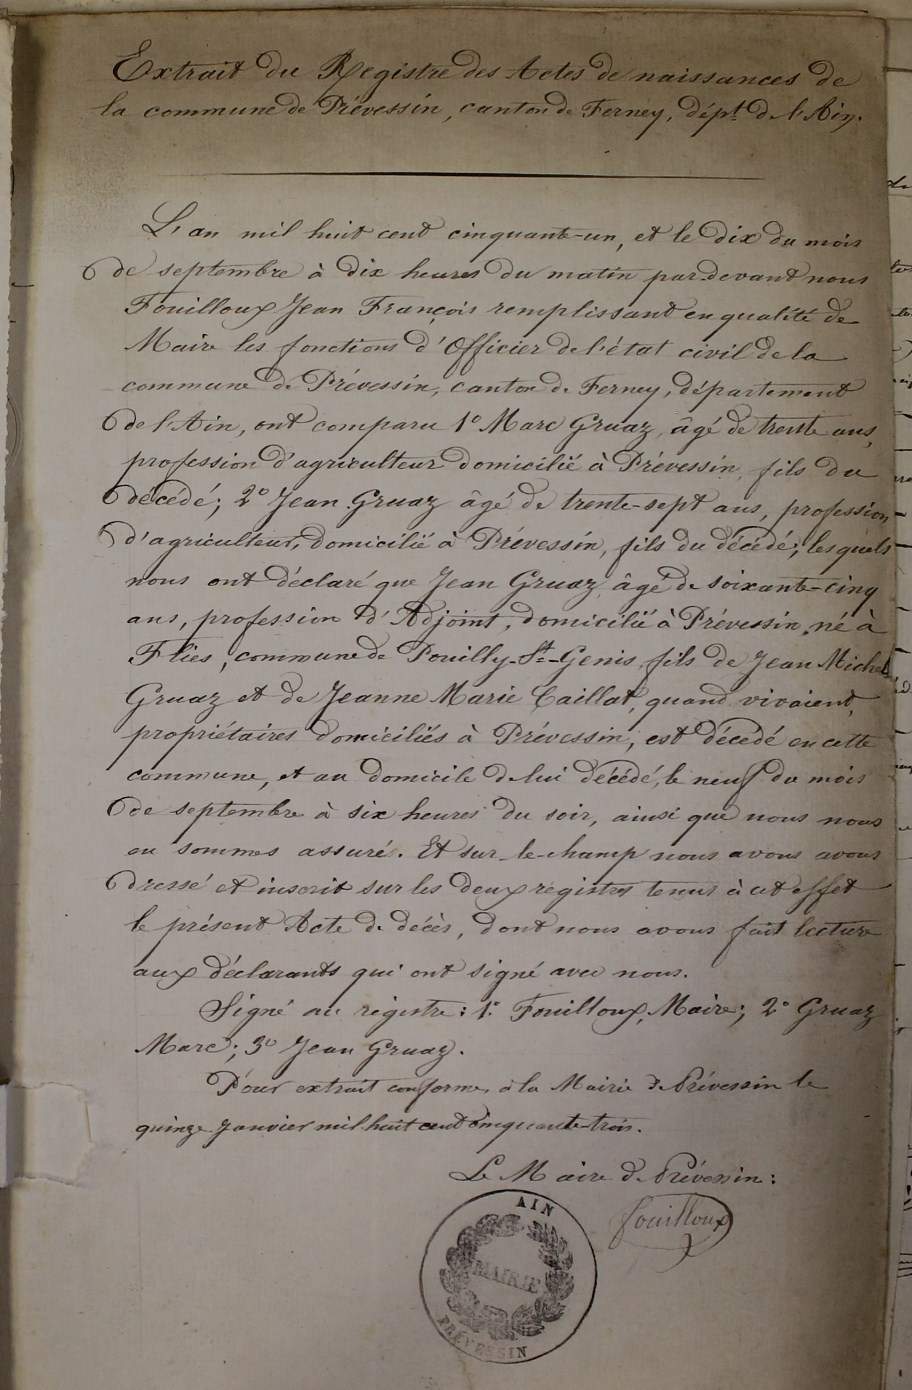 Extrait du Registre des Actes de naissances de
la commune de Prévessin, canton de Ferney, dépt. de l'Ain.
L'an mil huit cent cinquante-un, et le dix du mois
de septembre à dix heures du matin par-devant nous
Fouilloux Jean François remplissant en qualité de
Maire les fonctions d'Officier de l'état civil de la
commune de Prévessin, canton de Ferney, département
de l'Ain, ont comparu 1° Marc Gruaz, âgé de trente ans,
profession d'agriculteur domicilié à Prévessin, fils du
décédé; 2° Jean Gruaz âgé de trente-sept ans, profession
d'agriculteur, domicilié à Prévessin, fils du décédé; lesquels
nous ont déclaré que Jean Gruaz, âgé de soixante-cinq
ans, profession d'Adjoint, domicilié à Prévessin, né à
Flies, commune de Pouilly-St-Genis, fils de Jean Michel
Gruaz et de Jeanne Marie Caillat, quand vivaient,
propriétaires domiciliés à Prévessin, est décédé en cette
commune, et au domicile de lui décédé, le neuf du mois
de septembre à six heures du soir, ainsi que nous nous
en sommes assuré. Et sur-le-champ nous avons avons
dressé et inscrit sur les deux registres tenus à cet effet
le présent Acte de décès, dont nous avons fait lecture
aux déclarants qui ont signé avec nous.
Signé au registre: 1° Fouilloux, Maire; 2° Gruaz
Marc; 3° Jean Gruaz.
Pour extrait conforme, à la Mairie de Prévessin le
quinze Janvier mil huit cent cinquante-trois.
Le Maire de Prévessin:
Fouilloux
AIN
MAIRIE
PRÉVESSIN